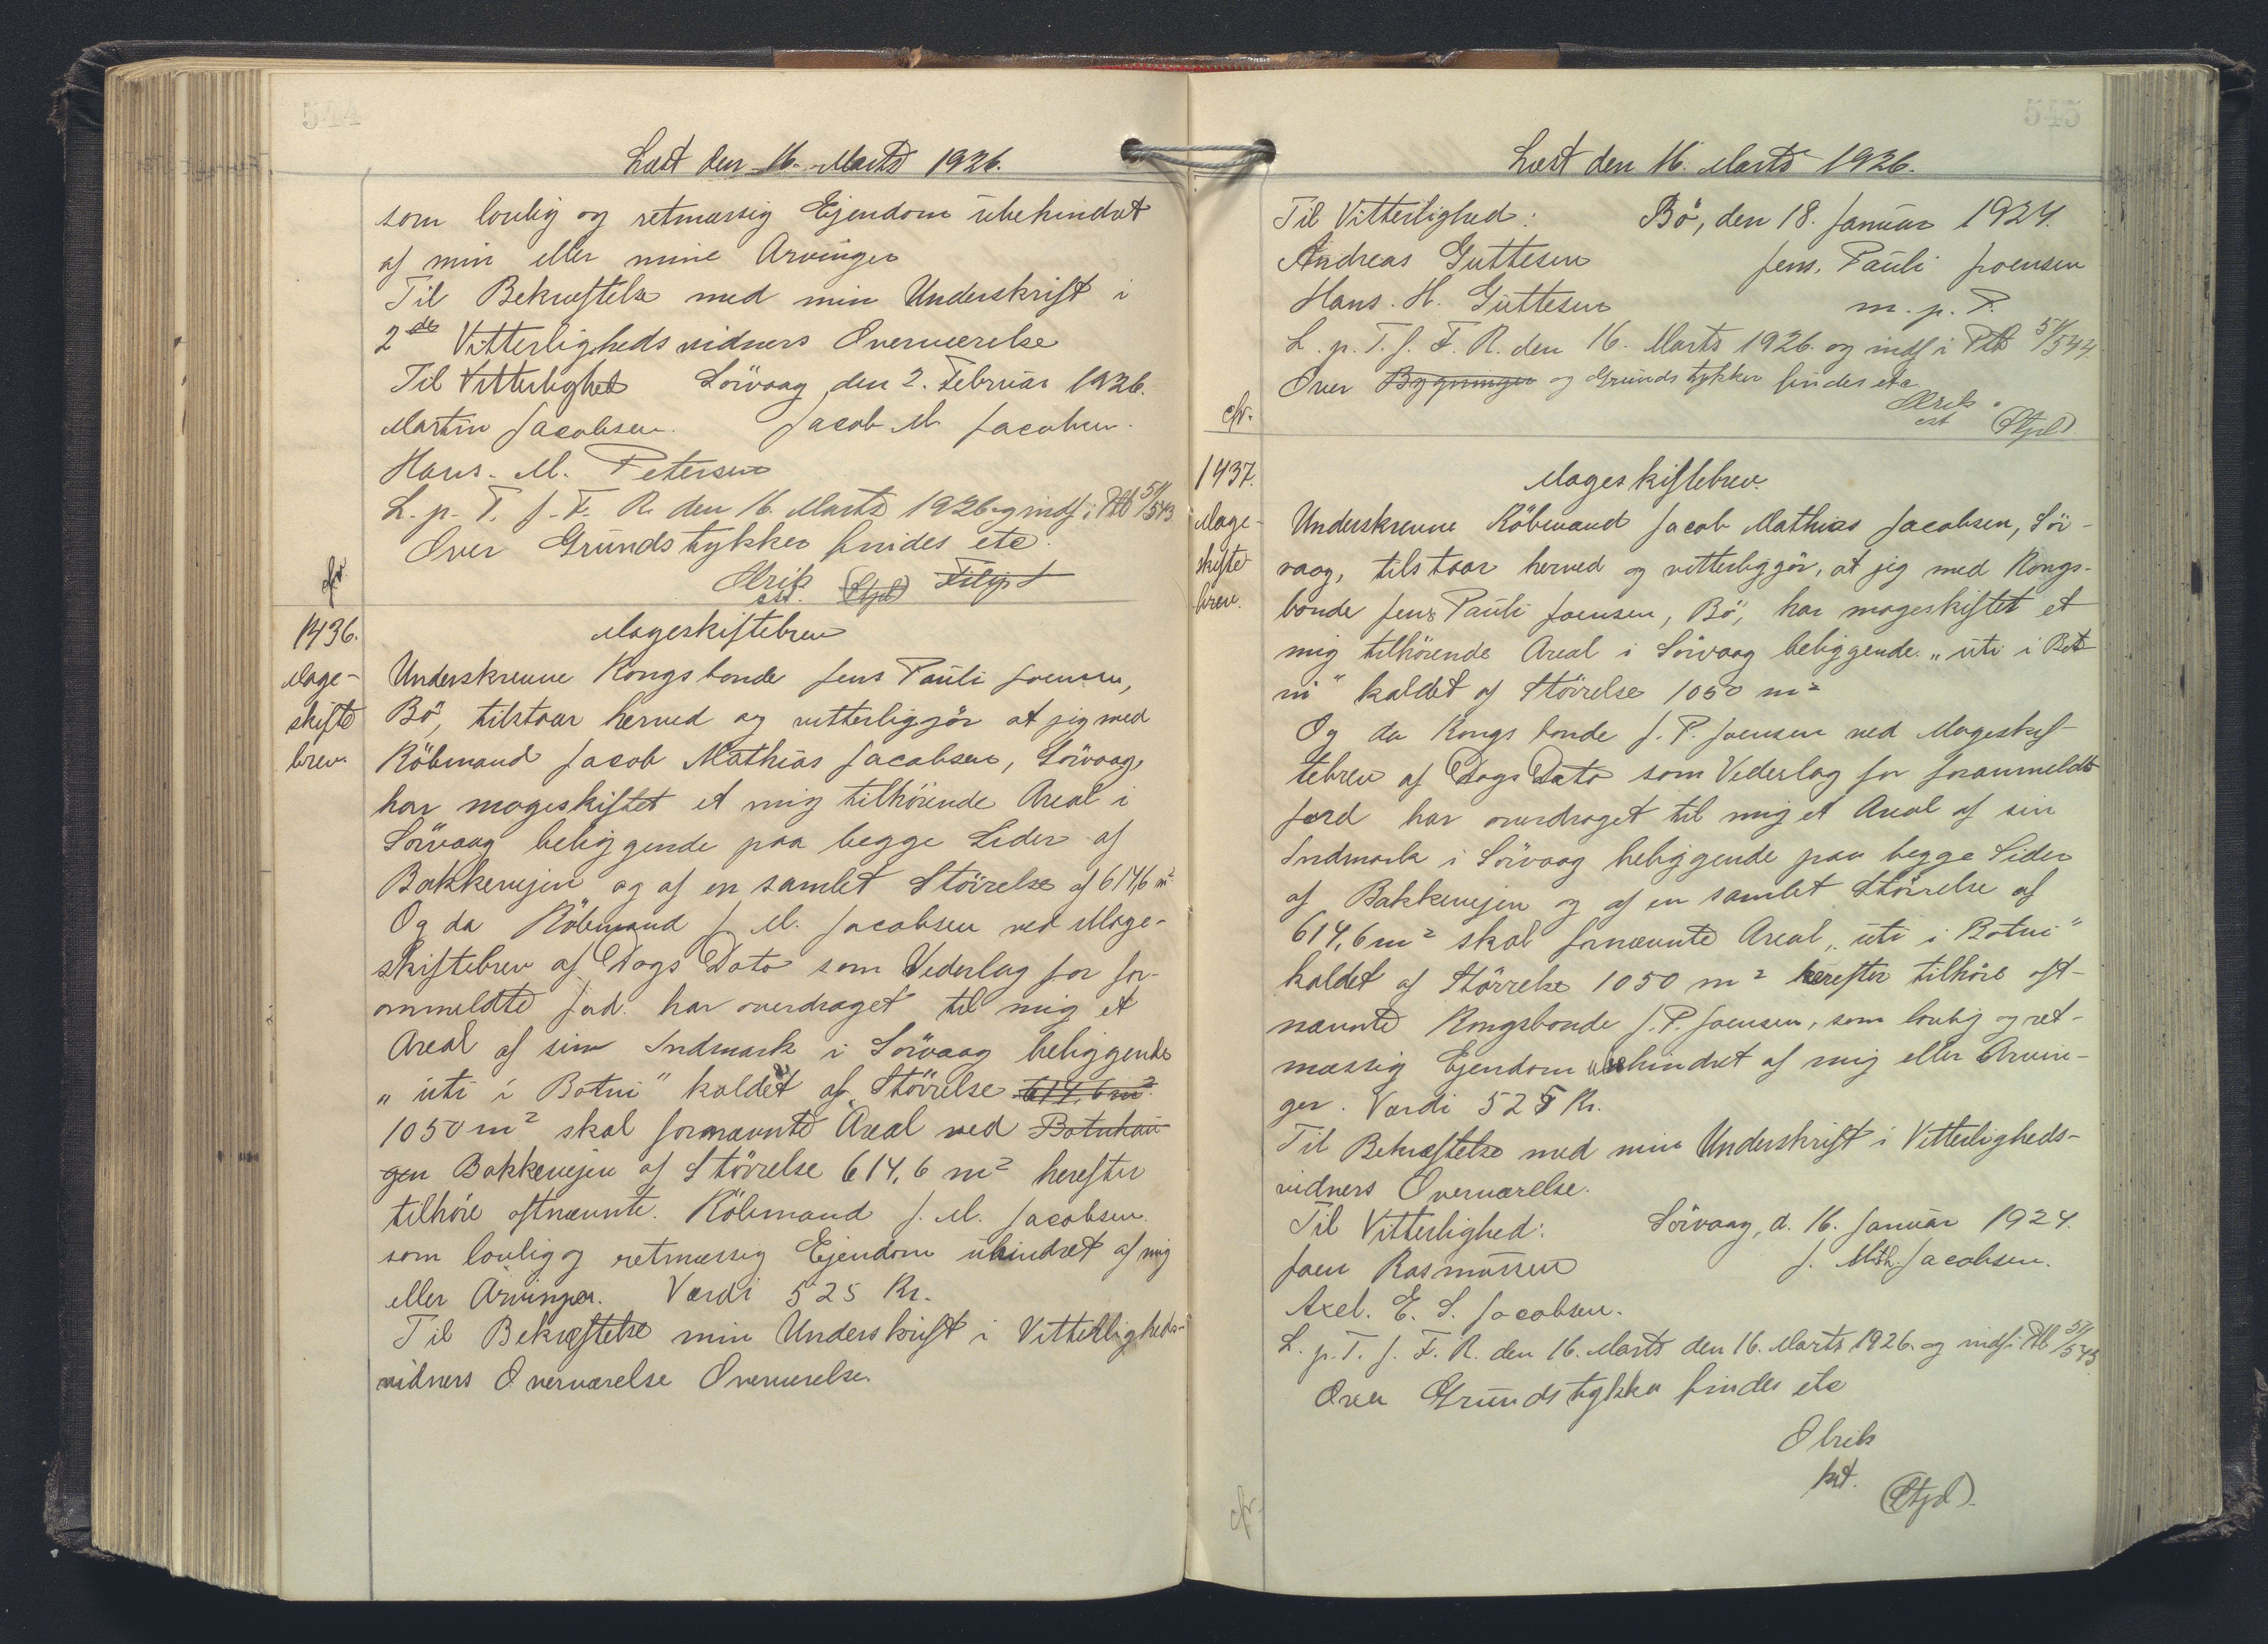 544
Læst den 16. Marts 1926.
som lovlig og retmæssig Ejendom ubehindret
af min eller mine Arvinger
Til Bekræftelse med min Underskrift i
2 des Vitterlighedsvidners Overværelse
Til Vitterlighet Sörvaag den 2. Februar 1926.
Martin Jacobsen. Jacob M Jacobsen.
Hans. M. Petersen
L. p. T. f. F. R. den 16. Marts 1926 og indf i Ptb 51/543
Over Grundstykker findes etc.
cfr.
Olrik
est. (Stpl)
1436.
Mageskiftebrev
Mage-
skifte
brev.
Underskrevne Kongsbonde Jens Pauli Joensen,
Bö, tilstaar herved og vitterliggjör at jeg med
Köbmand Jacob Mathias Jacobsen, Sörvaag,
har mageskiftet et mig tilhörende Areal i
Sörvaag beliggende paa begge Sider af
Bakkevejen og af en samlet Störrelse af 614,6 m²
Og da Köbmand J. M. Jacobsen ved Mage-
skiftebrev af Dags Dato som Vederlag for for-
ommeldte Jord. har overdraget til mig et
Areal af sin Indmark i Sörvaag beliggende
„uti i Botni" kaldet af Störrelse 614,6 m²
1050 m² skal fornævnte Areal ved Botnhau
gen Bakkevejen af Störrelse 614,6 m² herefter
tilhöre oftnævnte. Köbmand J. M. Jacobsen.
som lovlig og retmæssig Ejendom uhindret af mig
eller Arvinger. Værdi 525 Kr.
Til Bekræftelse min Underskrift i Vitterligheds-
vidners Overværelse Overværelse.
545
Læst den 16. Marts 1926.
Til Vitterlighed: Bö, den 18. Januar 1924.
Andreas Guttesen Jens. Pauli Joensen
Hans. H. Guttesen m. p. P.
L. p. T. f. F. R. den 16. Marts 1926. og indf i Ptb 51/544.
Over Bygninger og Grundstykker findes etc
cfr.
Olrik
est (Stpl)
1437.
Mageskiftebrev.
Mage-
skifte
brev.
Underskrevne Köbmand Jacob Mathias Jacobsen, Sör-
vaag, tilstaar herved og vitterliggör, at jeg med Kongs-
bonde Jens Pauli Joensen, Bö, har mageskiftet et
mig tilhörende Areal i Sörvaag beliggende „uti i Bot
ni" kaldet af Störrelse 1050 m²
Og da Kongsbonde J. P. Joensen ved Mageskif-
tebrev af Dags Dato som Vederlag for forommeldte
Jord har overdraget til mig et Areal af sin
Indmark i Sörvaag beliggende paa begge Sider
af Bakkevejen og af en samlet Störrelse af
614,6 m² skal fornævnte Areal „uti i Botni"
kaldet af Störrelse 1050 m² herefter tilhöre oft-
nævnte Kongsbonde J. P. Joensen, som lovlig og ret-
mæssig Ejendom uhindret af mig eller Arvin-
ger. Værdi 525 Kr.
Til Bekræftelse med min Underskrift i Vitterligheds-
vidners Overværelse.
Til Vitterlighed: Sörvaag, d. 16. Januar 1924.
Joen Rasmussen J. Mth. Jacobsen.
Axel. E. S. Jacobsen.
L. p. T. f. F. R. den 16. Marts den 16. Marts 1926. og indf i Ptb 51/545
Over Grundstykker findes etc
Olrik
kst.
(Stpl).
cfr.